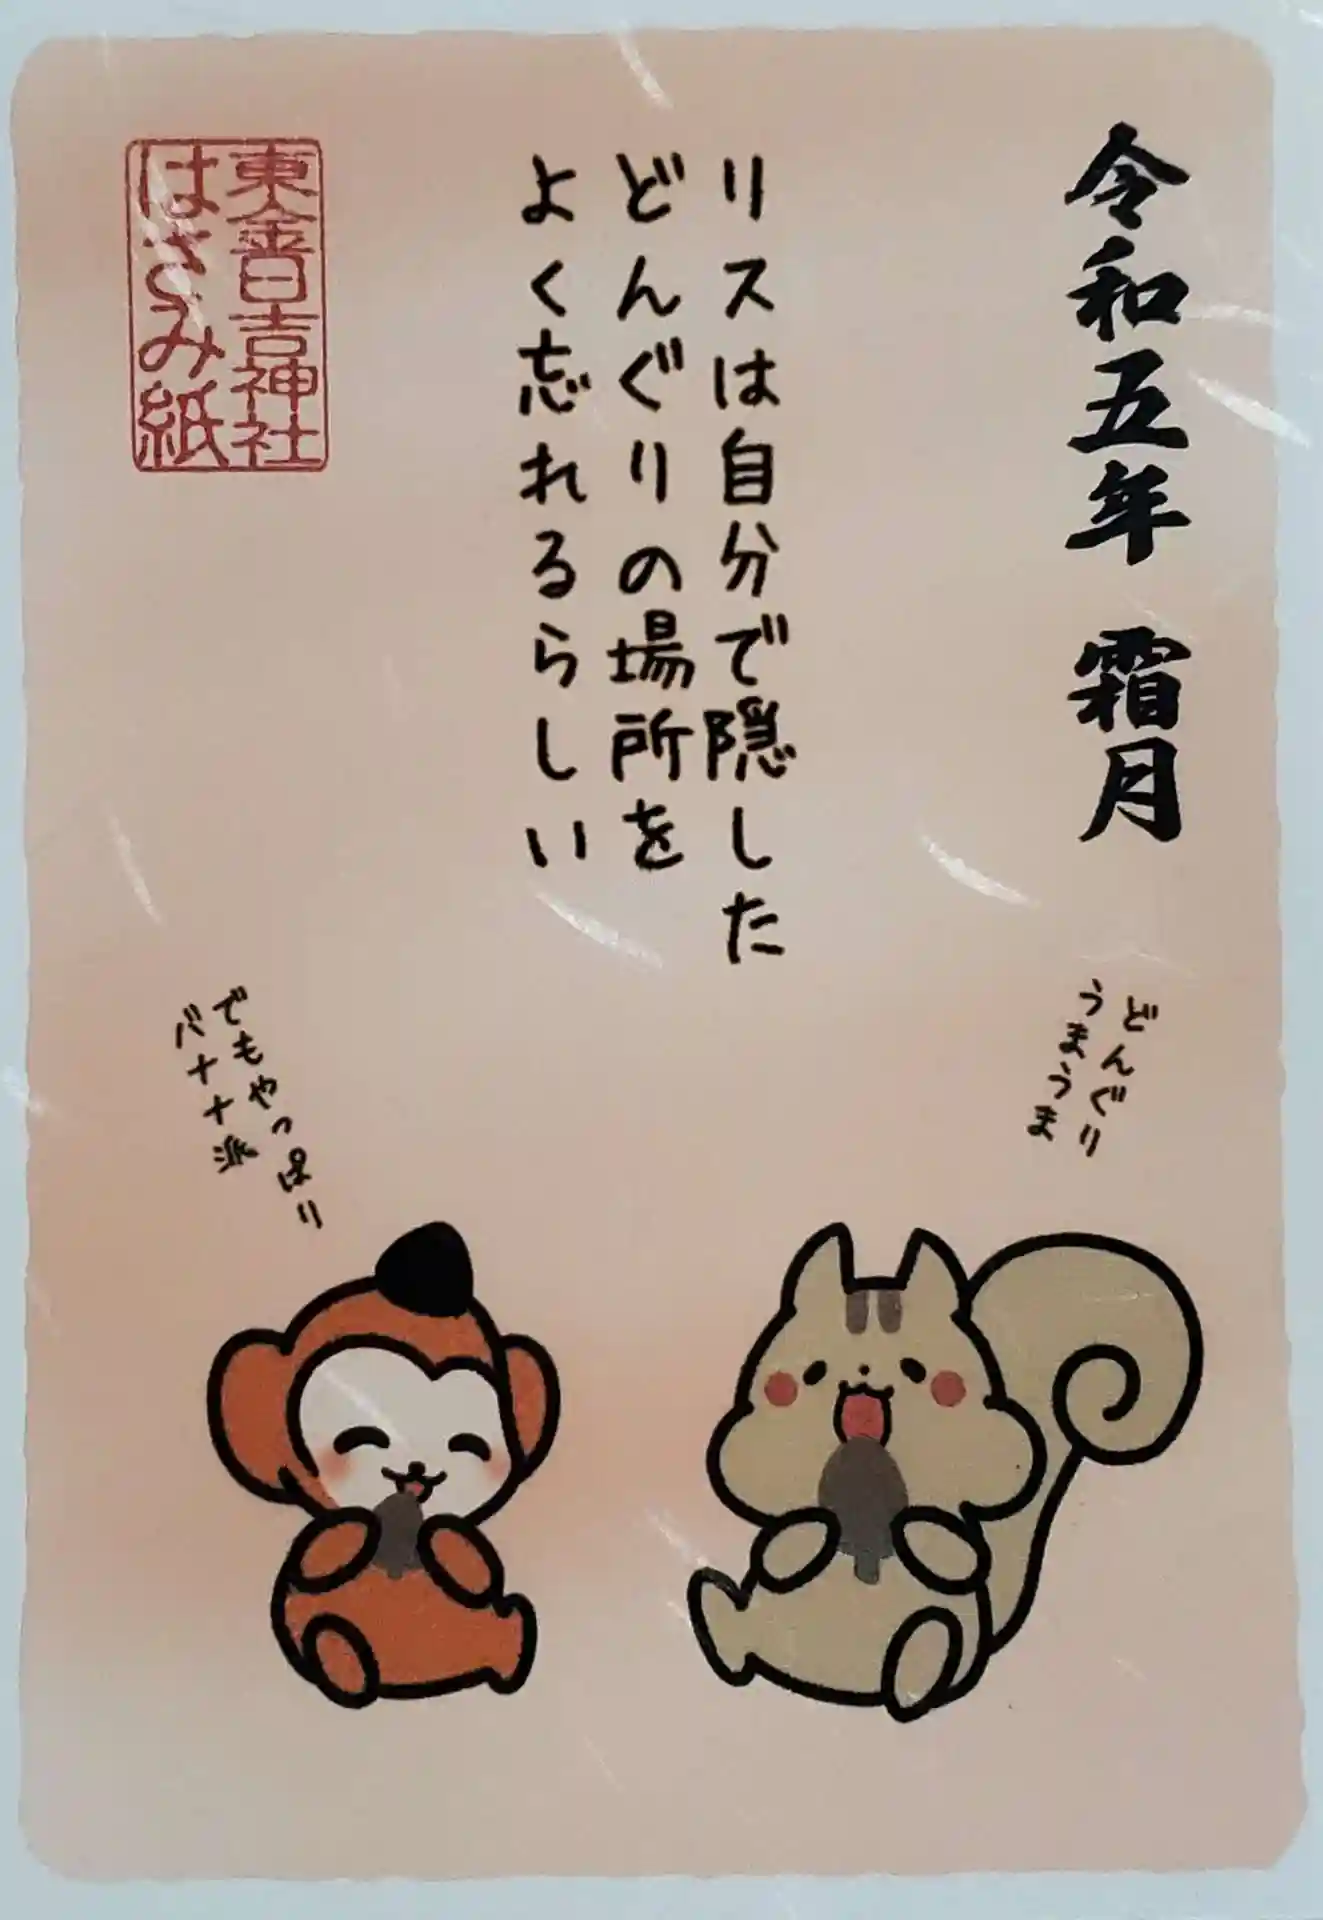 令和五年 霜月
リスは自分で隠した
どんぐりの場所を
よく忘れるらしい
東金日吉神社
はさみ紙
どんぐり
うまうま
でもやっぱり
バナナ派